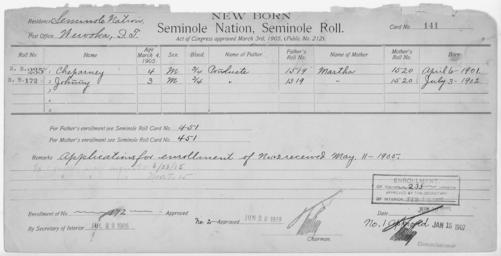 NEW BORN
Residence Seminole Nation.
Seminole Nation, Seminole Roll.
Card No. 141
Post Office Wewoka, I.T.
Act of Congress approved March 3rd, 1905, (Public No. 212).
Roll No. Name Age March 4, 1905 Sex. Blood. Name of Father. Father's Roll No. Name of Mother Mother's Roll No. Born
N.B. 235 1 Cheparney 4 M 3/4 1519 Martha 1520 April 6-1901
N.B. 172 2 Johnny 3 M 3/4 " 1519 " 1520 July 3-1902
For Father's enrollment see Seminole Roll Card No. 451
For Mother's enrollment see Seminole Roll Card No. 451
Remarks Applications for enrollment of Nos received May 11-1905.
ENROLLMENT
OF 235
APPROVED BY THE SECRETARY
OF INTERIOR
Enrollment of No. Approved
No. 2 Approved
Date
By Secretary of Interior
No. 1 JAN 15 1907
Chairman.
Commissioner